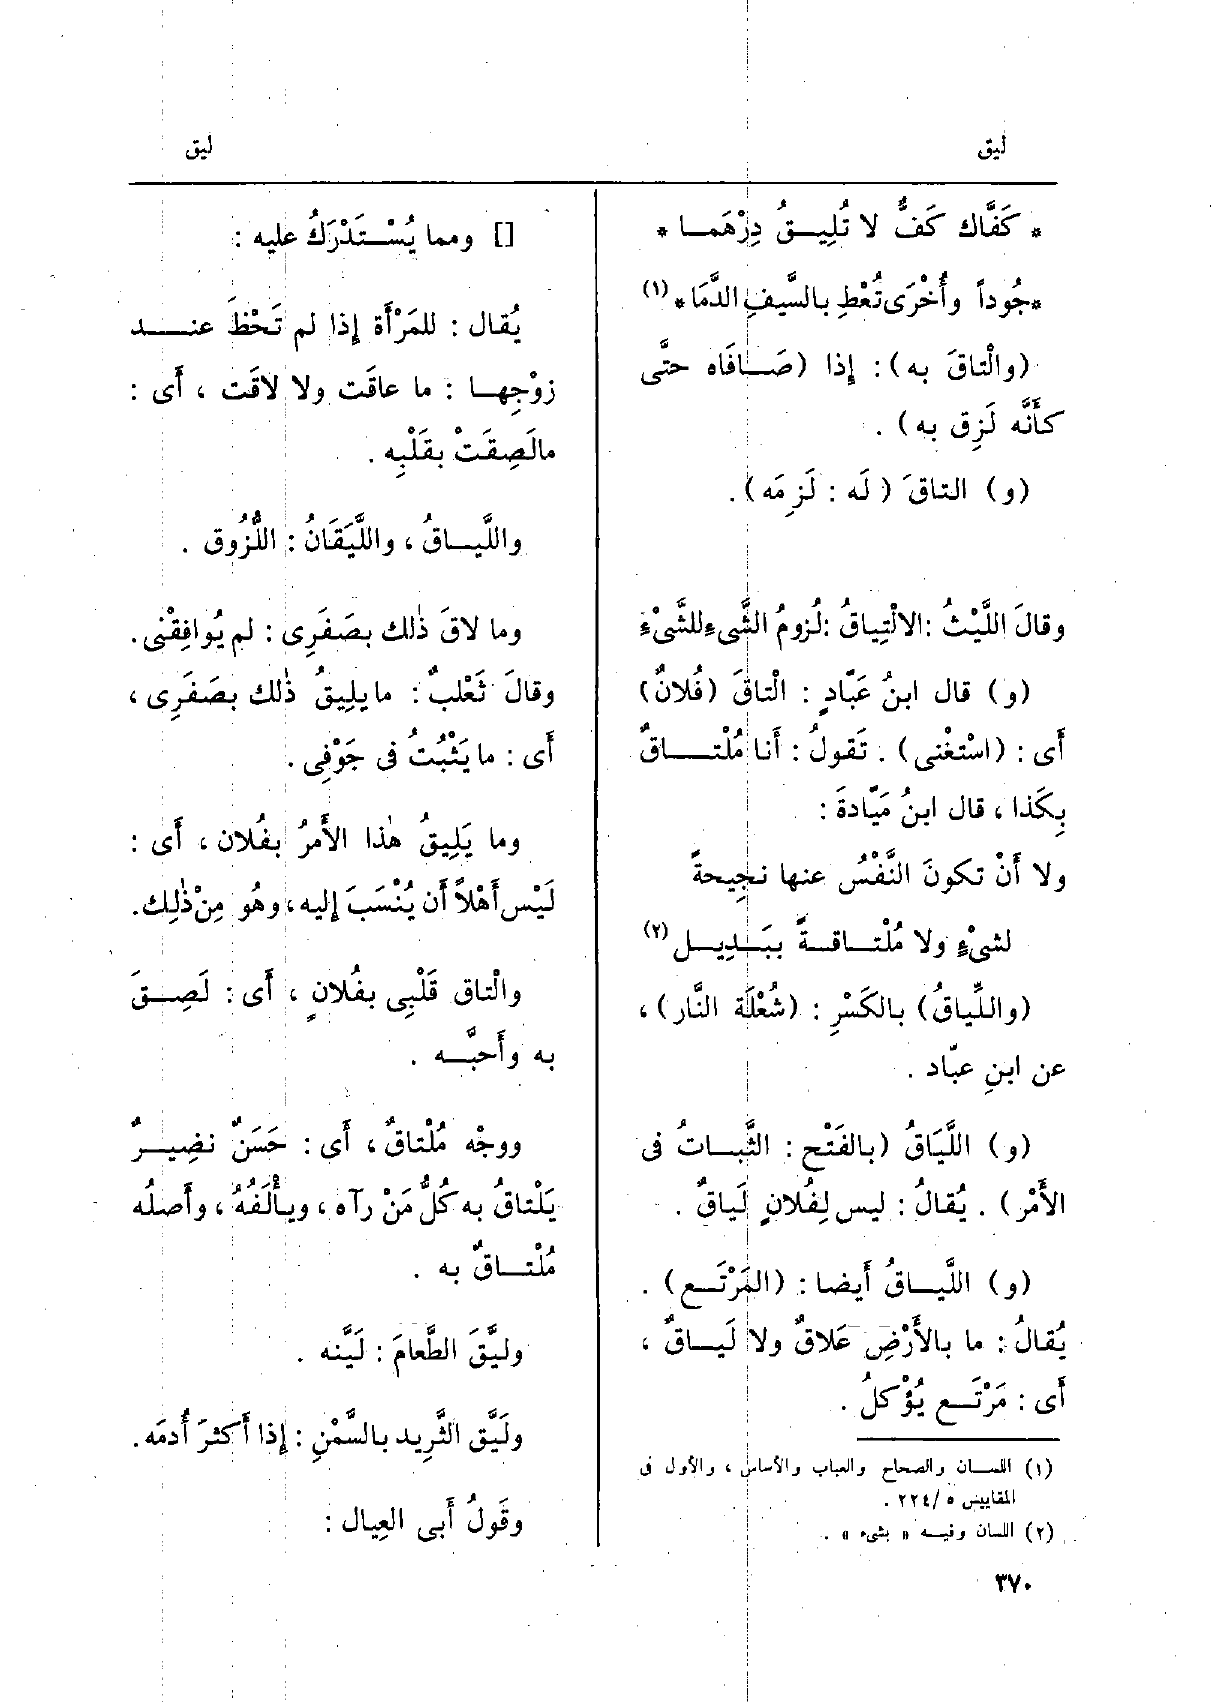 ليق
ليق
* كَفَّاك كَفٌّ لا تُلِيـقُ دِرْهَمـا *
*جُوداً وأُخْرَى تُعْطِ بالسَّيفِ الدَّمَا* (١)
(والْتاقَ به): إذا (صَـافَاه حتَّى
كأَنَّه لَزِق به) .
(و) التاقَ (لَه : لَزِمَه).
وقالَ اللَّيْثُ :الالْتِياقُ :لُزومُ الشَّىءِللشَّىْءِ
(و) قال ابنُ عَبَّادٍ : الْتاقَ (فُلانٌ)
أَى : (اسْتغْنى) . تَقولُ : أَنا مُلْتـاقٌ
بِكَذا ، قال ابنُ مَيّادةَ :
ولا أَنْ تكونَ النَّفْسُ عنها نجيحةً
لشىْءٍ ولا مُلْتـاقـةً ببَـدِيـل (٢)
(واللِّياقُ) بالكَسْرِ : (شُعْلَة النَّار) ،
عن ابنِ عبّاد .
(و) اللَّيَاقُ (بالفَتْح : الثَّبـاتُ فى
الأَمْر) . يُقالُ : ليس لِفُلانٍ لَياقٌ .
(و) اللَّيـاقُ أَيضا : (المَرْتَـع) .
يُقالُ : ما بالأَرْضِ عَلاقٌ ولا لَيـاقٌ ،
أَى : مَرْتَـع يُؤْكلُ .
(١) اللسـان والصحاح والعباب والأساس ، والأول فى
المقاييس ٥ /٢٢٤ .
(٢) اللسان وفيـه « بشىء » .
[] ومما يُسْـتَدْرَكُ عليه :
يُقال : للمَرْأَة إذا لم تَحْظَ عنـد
زوْجِهـا : ما عاقَت ولا لاقَت ، أَى :
مالَصِقَتْ بقَلْبِه .
واللَّيـاقُ ، واللَّيَقَانُ : اللُّزُوق .
وما لاقَ ذٰلك بصَفَرِى : لم يُوافِقْنى.
وقالَ ثَعْلبٌ : مايلِيقُ ذٰلك بصَفَرِى ،
أَى : ما يَثْبُتُ فى جَوْفِى .
وما يَلِيقُ هٰذا الأَمرُ بفُلان ، أَى :
لَيْس أَهْلاً أَن يُنْسَبَ إليه ، وهُو مِنْ ذٰلِك.
والْتاق قَلْبِى بفُلانٍ ، أَى : لَصِـقَ
به وأَحبَّـه .
ووجْه مُلْتاقٌ ، أَى : حَسَنٌ نضِيـرٌ
يَلْتاقُ به كُلُّ مَنْ رآه ، ويـأْلَفُهُ ، وأَصلُه
مُلْتـاقٌ به .
وليَّقَ الطَّعامَ : لَيَّنه .
ولَيَّق الثَّرِيد بالسَّمْنِ : إذا أَكثرَ أُدمَه.
وقَولُ أَبى العِيال :
٣٧٠